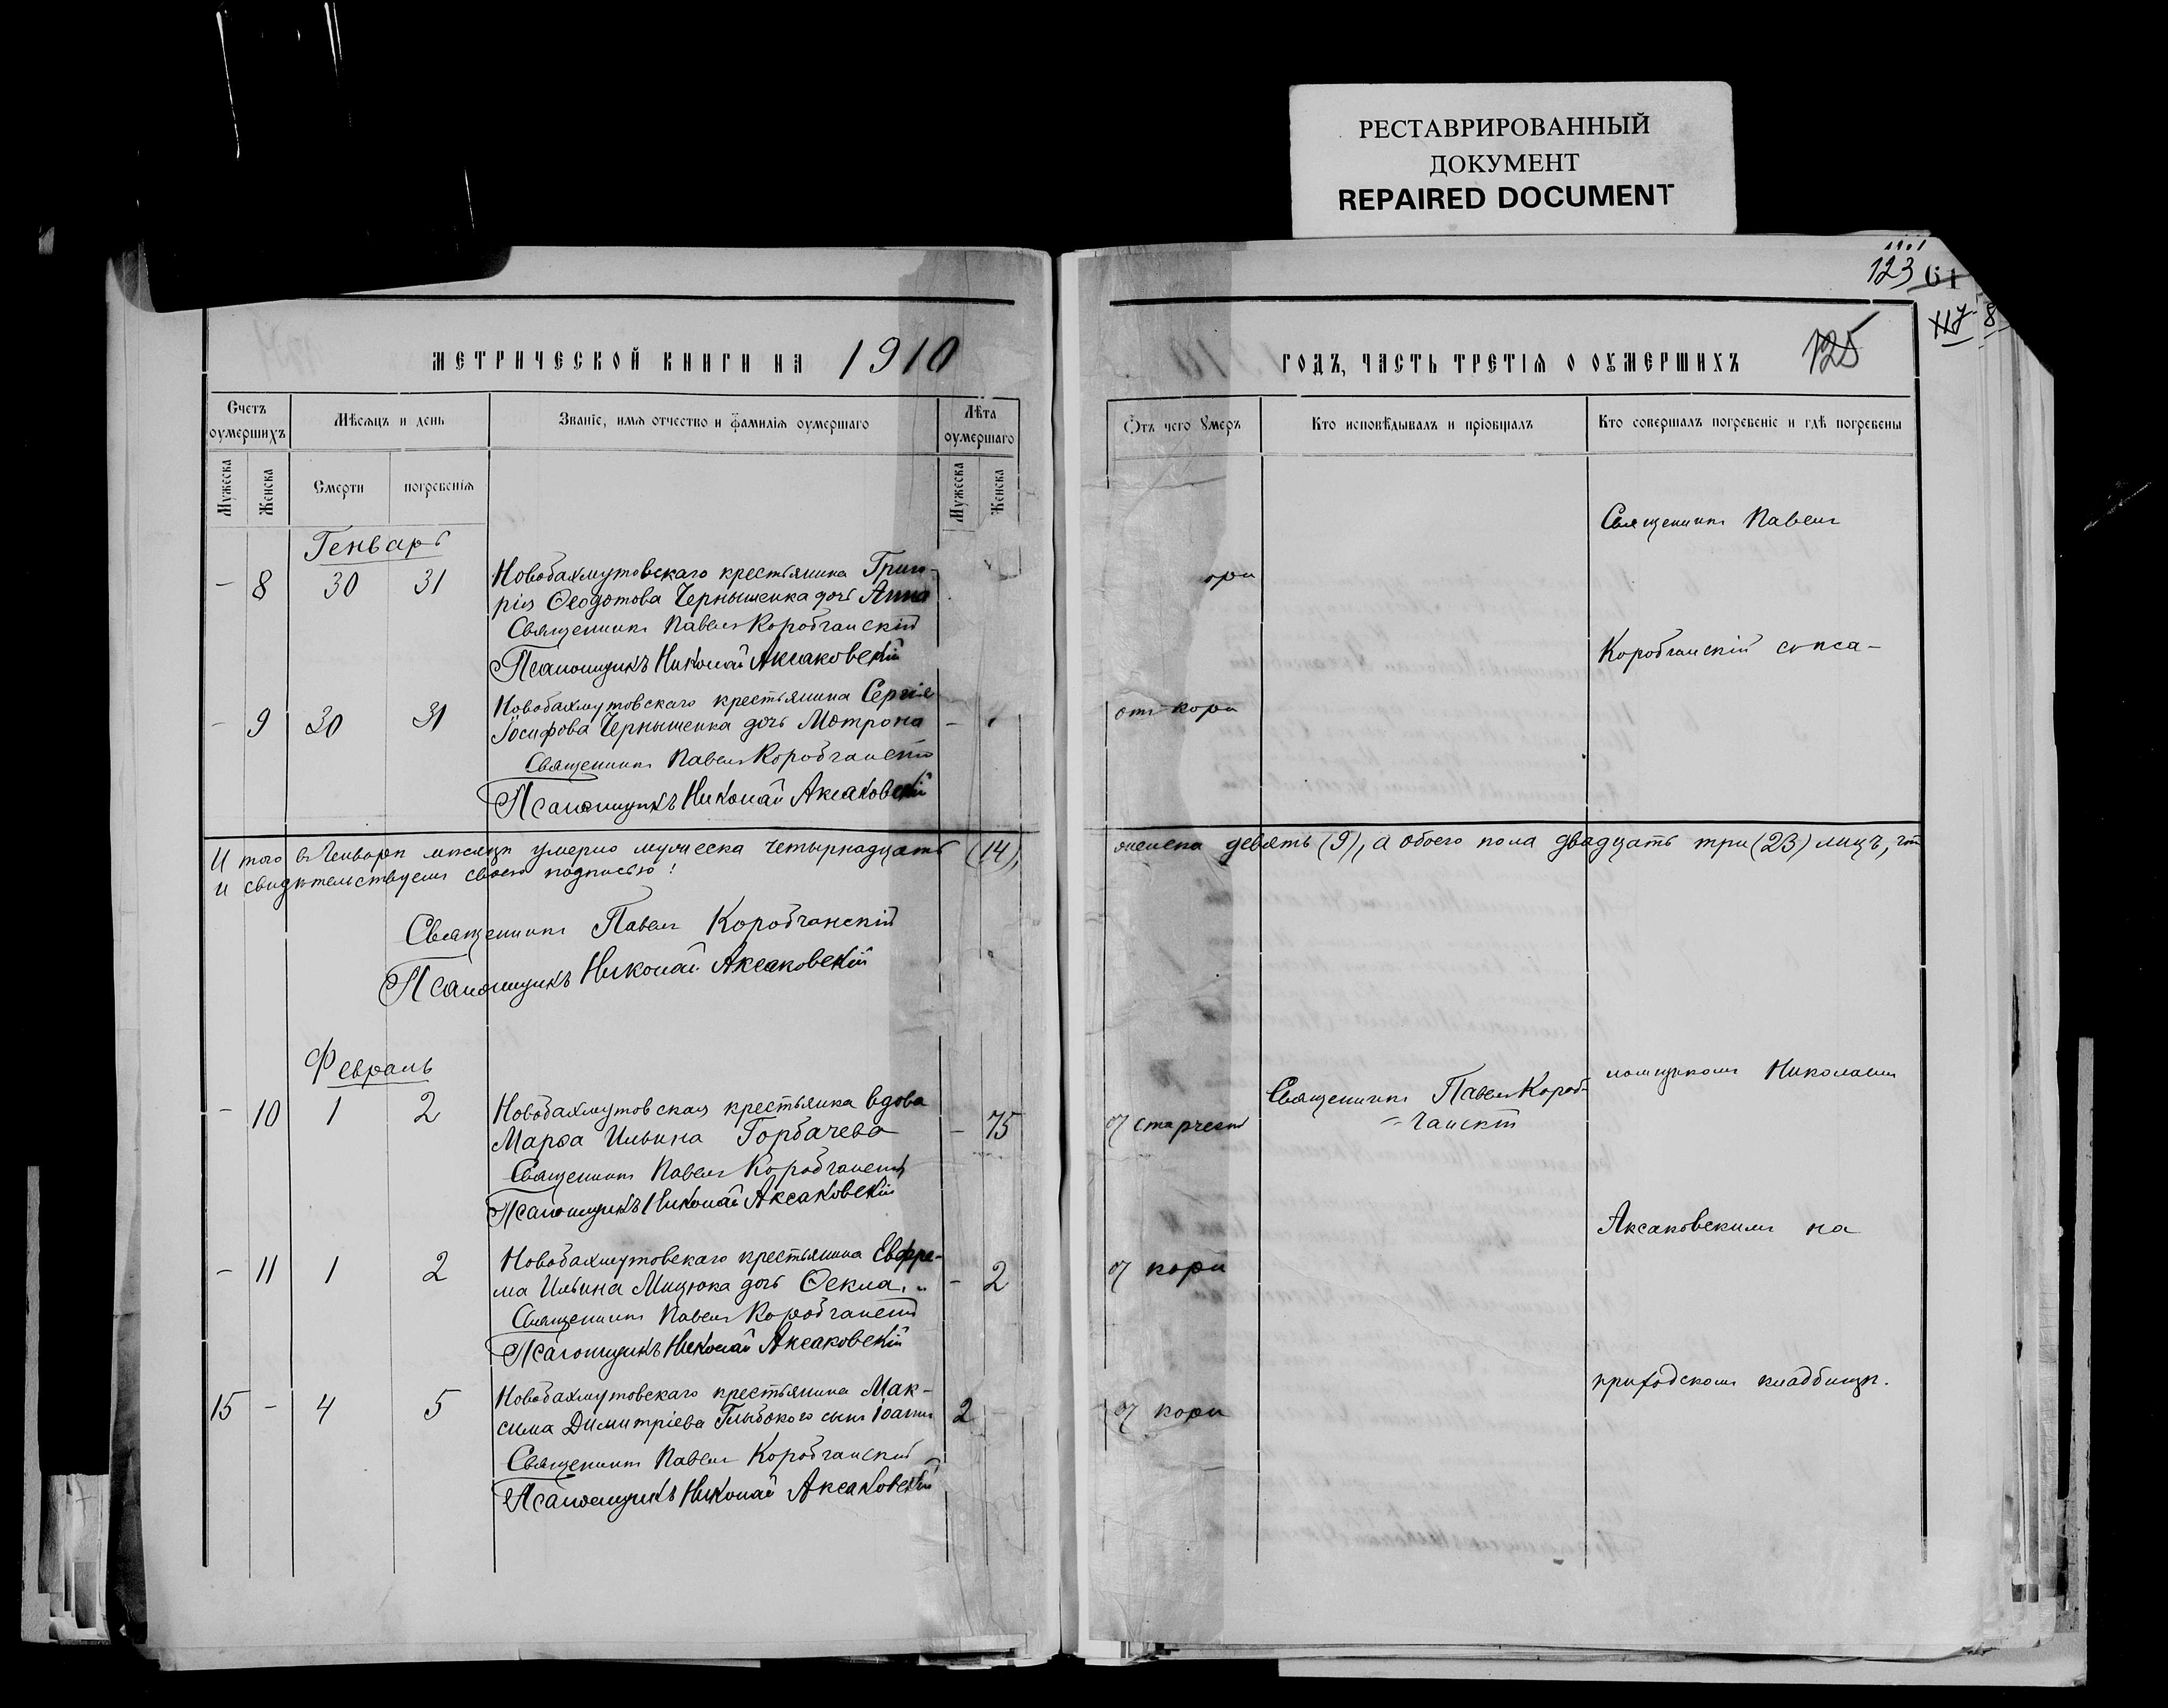 РЕСТАВРИРОВАННЫЙ
ДОКУМЕНТ
REPAIRED DOCUMENT
МЕТРИЧЕСКОЙ КНИГИ НА 1910
Счетъ оумершихъ
Мѣсяцъ и день
Званіе, имя отчество и фамилія оумершаго
Лѣта оумершаго
Мужеска
Женска
Смерти
погребенія
Мужеска
Женска
Генварь
- 8 30 31 Новобахмутовскаго крестьянина Григо-
рія Ѳеодотова Чернышенка дочь Анна
Священникъ Павелъ Коробчанскій
Псаломщикъ Николай Аксаковскій
- 9 30 31 Новобахмутовскаго крестьянина Сергія
Іосифова Чернышенка дочь Мотрона -
Священникъ Павелъ Коробчанскій
Псаломщикъ Николай Аксаковскій
И того въ Генварѣ мѣсяцѣ умерло мужеска четырнадцать (14),
и свидѣтельствуемъ своею подписью:
Священникъ Павелъ Коробчанскій
Псаломщикъ Николай Аксаковскій
Февраль
- 10 1 2 Новобахмутовская крестьянка вдова
Марѳа Ильина Горбачева - 75
Священникъ Павелъ Коробчанскій
Псаломщикъ Николай Аксаковскій
- 11 1 2 Новобахмутовскаго крестьянина Евфре-
ма Ильина Мицюка дочь Ѳекла - 2
Священникъ Павелъ Коробчанскій
Псаломщикъ Николай Аксаковскій
15 - 4 5 Новобахмутовскаго крестьянина Мак-
сима Димитріева Глыбокого сынъ Іоаннъ 2 -
Священникъ Павелъ Коробчанскій
Псаломщикъ Николай Аксаковскій
1901
123 61
117 8
ГОДЪ, ЧАСТЬ ТРЕТІЯ О ОУМЕРШИХЪ 125
Отъ чего умеръ
Кто исповѣдывалъ и пріобщалъ
Кто совершалъ погребеніе и гдѣ погребены
Священникъ Павелъ
ори
Коробчанскій съ пса-
отъ кори
женска девять (9), а обоего пола двадцать три (23) лицъ, что
ломщикомъ Николаемъ
Священникъ Павелъ Короб-
чанскій
отъ старчест
Аксаковскимъ на
отъ кори
приходскомъ кладбищѣ.
отъ кори